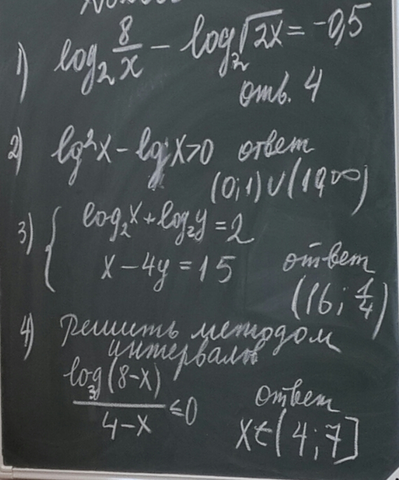 1) log₂ 8/x − log₂ √2x = −0,5
отв. 4
2) lg²x − lg x > 0 ответ
(0;1)∪(10;∞)
3) { log₂x + log₂y = 2
x − 4y = 15 ответ
(16; 1/4)
4) Решить методом
интервалов
log₃(8−x) / 4−x ≤ 0 ответ
x∈(4;7]